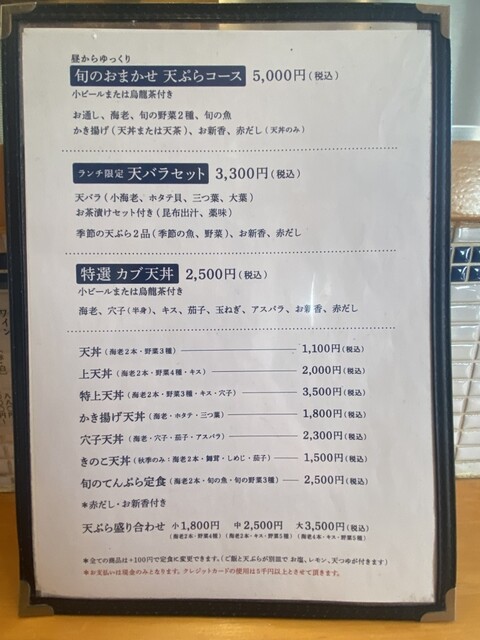 昼からゆっくり
旬のおまかせ 天ぷらコース 5,000円(税込)
小ビールまたは烏龍茶付き
お通し、海老、旬の野菜2種、旬の魚
かき揚げ(天丼または天茶)、お新香、赤だし(天丼のみ)
ランチ限定 天バラセット 3,300円(税込)
天バラ(小海老、ホタテ貝、三つ葉、大葉)
お茶漬けセット付き(昆布出汁、薬味)
季節の天ぷら2品(季節の魚、野菜)、お新香、赤だし
特選 カブ天丼 2,500円(税込)
小ビールまたは烏龍茶付き
海老、穴子(半身)、キス、茄子、玉ねぎ、アスパラ、お新香、赤だし
天丼(海老2本・野菜3種) 1,100円(税込)
上天丼(海老2本・野菜4種・キス) 2,000円(税込)
特上天丼(海老2本・野菜3種・キス・穴子) 3,500円(税込)
かき揚げ天丼(海老・ホタテ・三つ葉) 1,800円(税込)
穴子天丼(海老・穴子・茄子・アスパラ) 2,300円(税込)
きのこ天丼(秋季のみ:海老2本・舞茸・しめじ・茄子) 1,500円(税込)
旬のてんぷら定食(海老2本・旬の魚・旬の野菜3種) 2,500円(税込)
*赤だし・お新香付き
天ぷら盛り合わせ 小1,800円 中2,500円 大3,500円(税込)
(海老2本・野菜4種) (海老2本・キス・野菜5種) (海老4本・キス・野菜5種)
*全ての商品は+100円で定食に変更できます。(ご飯と天ぷらが別皿で お塩、レモン、天つゆが付きます)
*お支払いは現金のみとなります。クレジットカードの使用は5千円以上とさせて頂きます。
ワイン